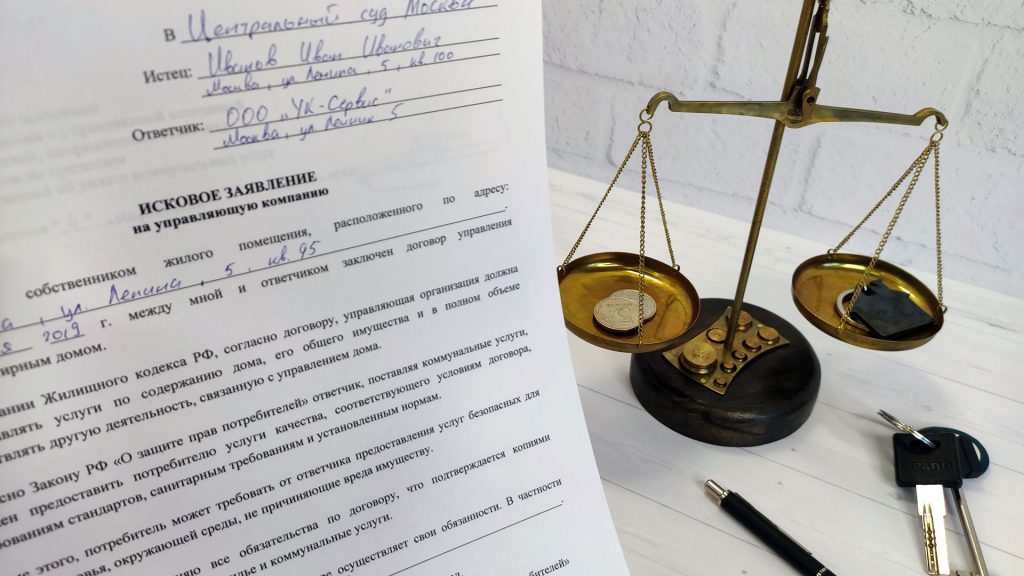 В Центральный суд Москвы
Истец: Иванов Иван Иванович
Москва, ул Ленина, 5, кв 100
Ответчик: ООО "УК-Сервис"
Москва, ул Ленин 5
ИСКОВОЕ ЗАЯВЛЕНИЕ
на управляющую компанию
собственником жилого помещения, расположенного по адресу:
а, ул. Ленина, 5, кв. 95.
2019 г. между мной и ответчиком заключен договор управления
ирным домом.
ании Жилищного кодекса РФ, согласно договору, управляющая организация должна
влять услуги по содержанию дома, его общего имущества и в полном объеме
твлять другую деятельность, связанную с управлением дома.
сно Закону РФ «О защите прав потребителей» ответчик, поставляя коммунальные услуги,
ен предоставить потребителю услуги качества, соответствующего условиям договора,
бованиям стандартов, санитарным требованиям и установленным нормам.
е этого, потребитель может требовать от ответчика предоставления услуг безопасных для
овья, окружающей среды, не причиняющие вреда имуществу.
няю все обязательства по договору, что подтверждается копиями
лье и коммунальные услуги.
осуществляет свои обязанности. В частности
ебителей»